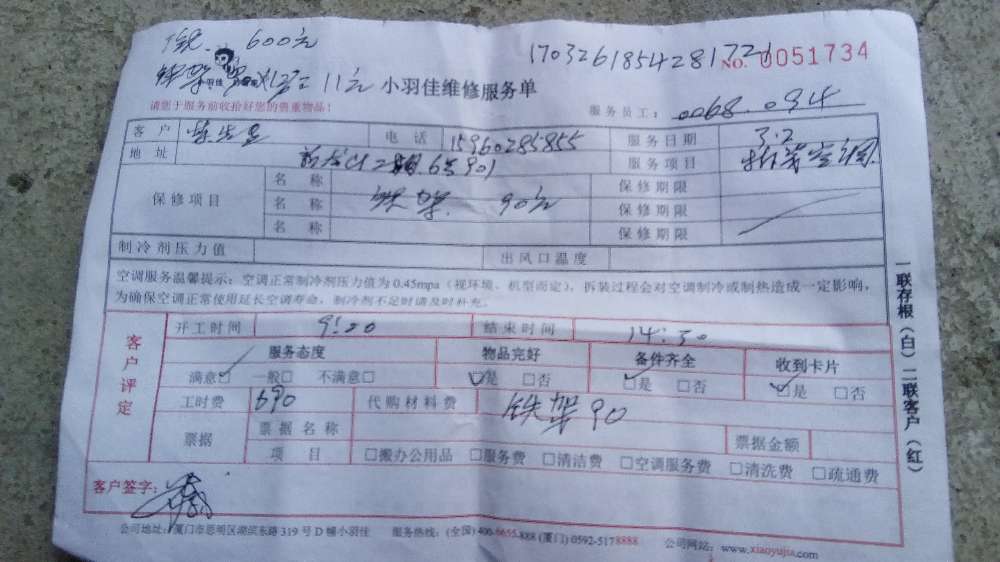 600元
170326185428172 NO. 0051734
铁架 11元 小羽佳维修服务单
请您于服务前收拾好您的贵重物品! 服务员工: 0068.034
客户 电话 15960285855 服务日期 3.2
地址 901 服务项目 拆装空调
保修项目 名称 保修期限
名称 铁架 90元 保修期限
名称 保修期限
制冷剂压力值 出风口温度
空调服务温馨提示:空调正常制冷剂压力值为0.45mpa(视环境、机型而定),拆装过程会对空调制冷或制热造成一定影响,
为确保空调正常使用延长空调寿命,制冷剂不足时请及时补充。
客户评定 开工时间 9:20 结束时间 14:30
服务态度 物品完好 备件齐全 收到卡片
满意☑ 一般□ 不满意□ ☑是 □否 ☑是 □否 ☑是 □否
工时费 690 代购材料费 铁架90
票据 票据名称 票据金额
项目 □搬办公用品 □服务费 □清洁费 □空调服务费 □清洗费 □疏通费
客户签字:
公司地址:厦门市思明区湖滨东路319号D幢小羽佳 服务热线:(全国)400-6655-888 (厦门)0592-5178888 公司网站:www.xiaoyujia.com
一联存根(白)二联客户(红)